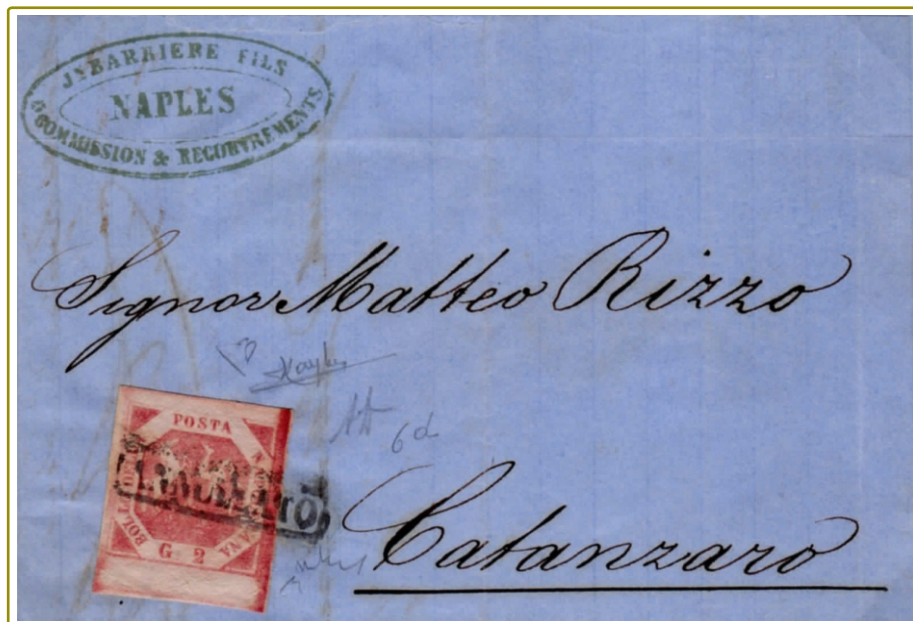 JNBARRIERE FILS
NAPLES
COMMISSION & RECOUVREMENTS
Signor Matteo Rizzo
6 d
POSTA
BOLLO
ANNULLATO
G. 2
Catanzaro